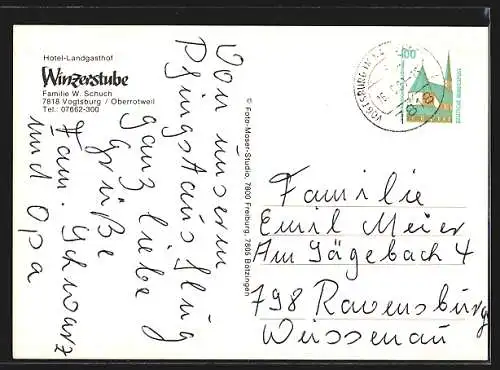 Hotel-Landgasthof
Winzerstube
Familie W. Schuch
7818 Vogtsburg / Oberrotweil
Tel.: 07662-300
Von unserm
Pfingstausflug
ganz liebe
Grüße
Fam. Schwarz
und Opa
© Foto-Moser-Studio, 7800 Freiburg, 7805 Bötzingen
100
VOGTSBURG IM
Familie
Emil Meier
Am Jägebach 4
798 Ravensburg
Weissenau